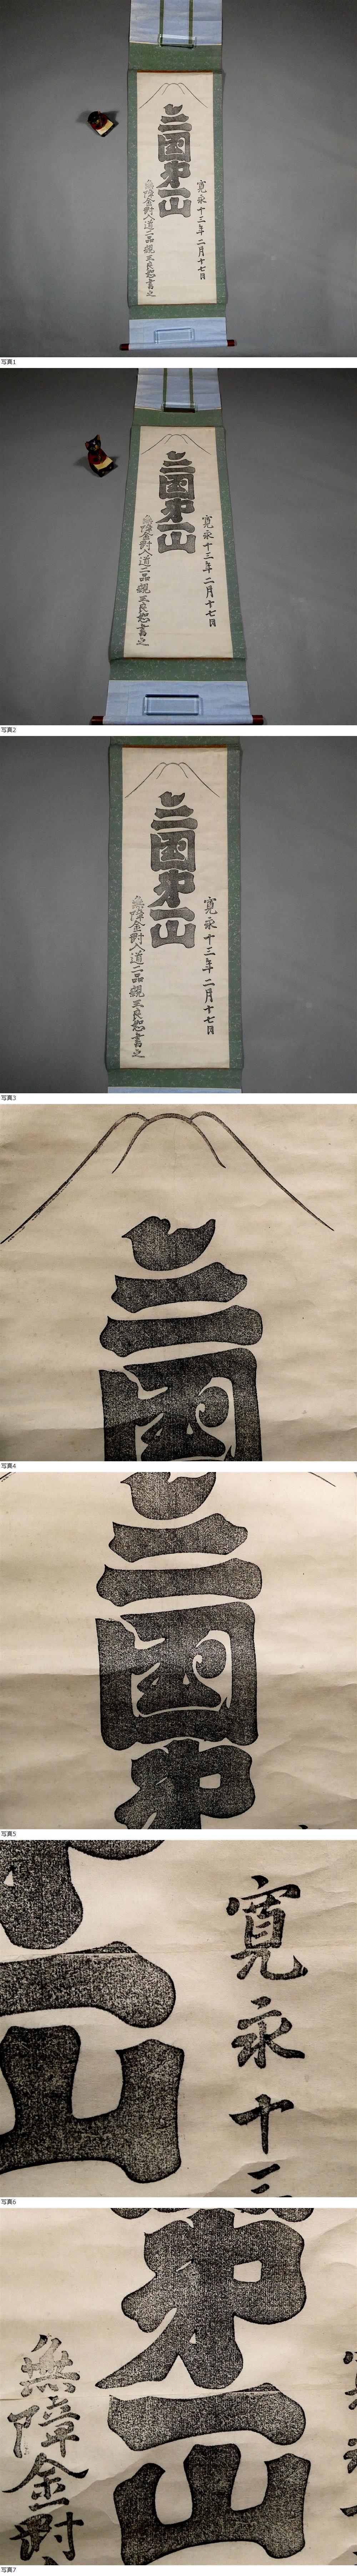 三国第一山
寛永十三年二月十七日
無障金剛入道二品親王良恕書之
写真1
三国第一山
寛永十三年二月十七日
無障金剛入道二品親王良恕書之
写真2
三国第一山
寛永十三年二月十七日
無障金剛入道二品親王良恕書之
写真3
三国
写真4
三国第
写真5
一山
寛永十三
写真6
第一山
無障金剛
写真7